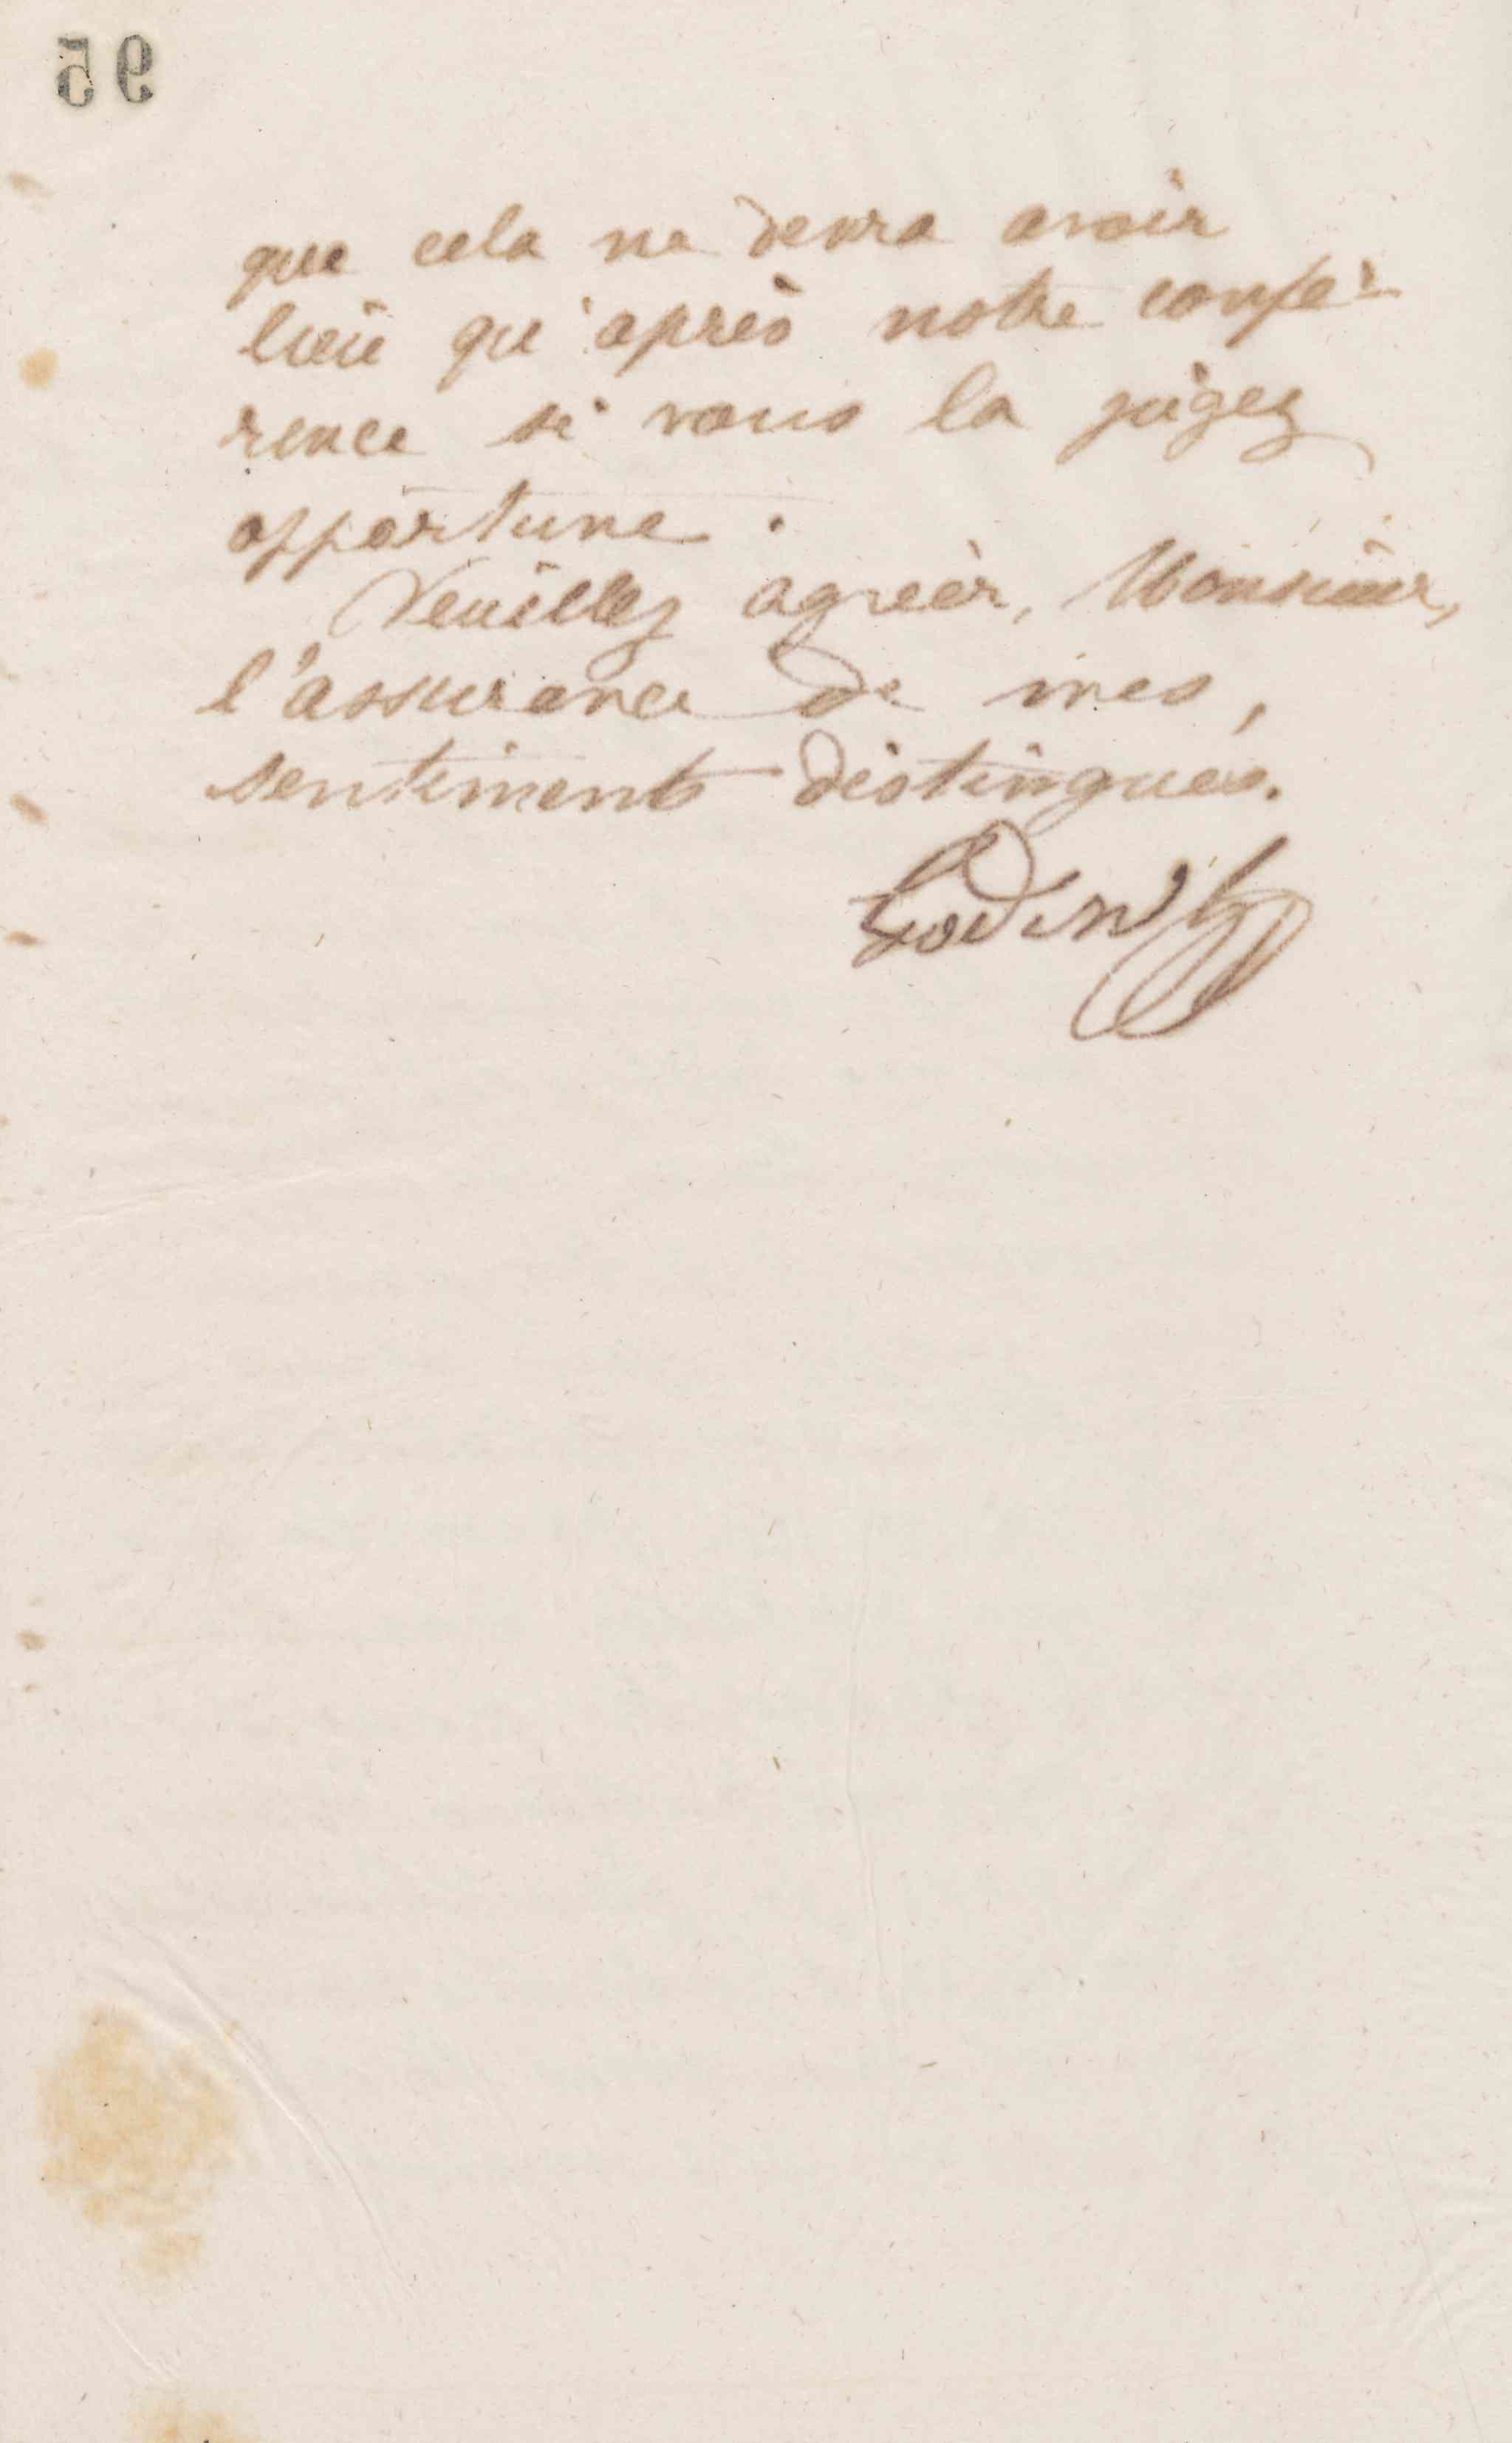 95
que cela ne devra avoir
lieu qu'après notre confé-
rence si vous la jugez
opportune.
Veuillez agréer, Monsieur,
l'assurance de mes,
sentiments distingués.
Godin